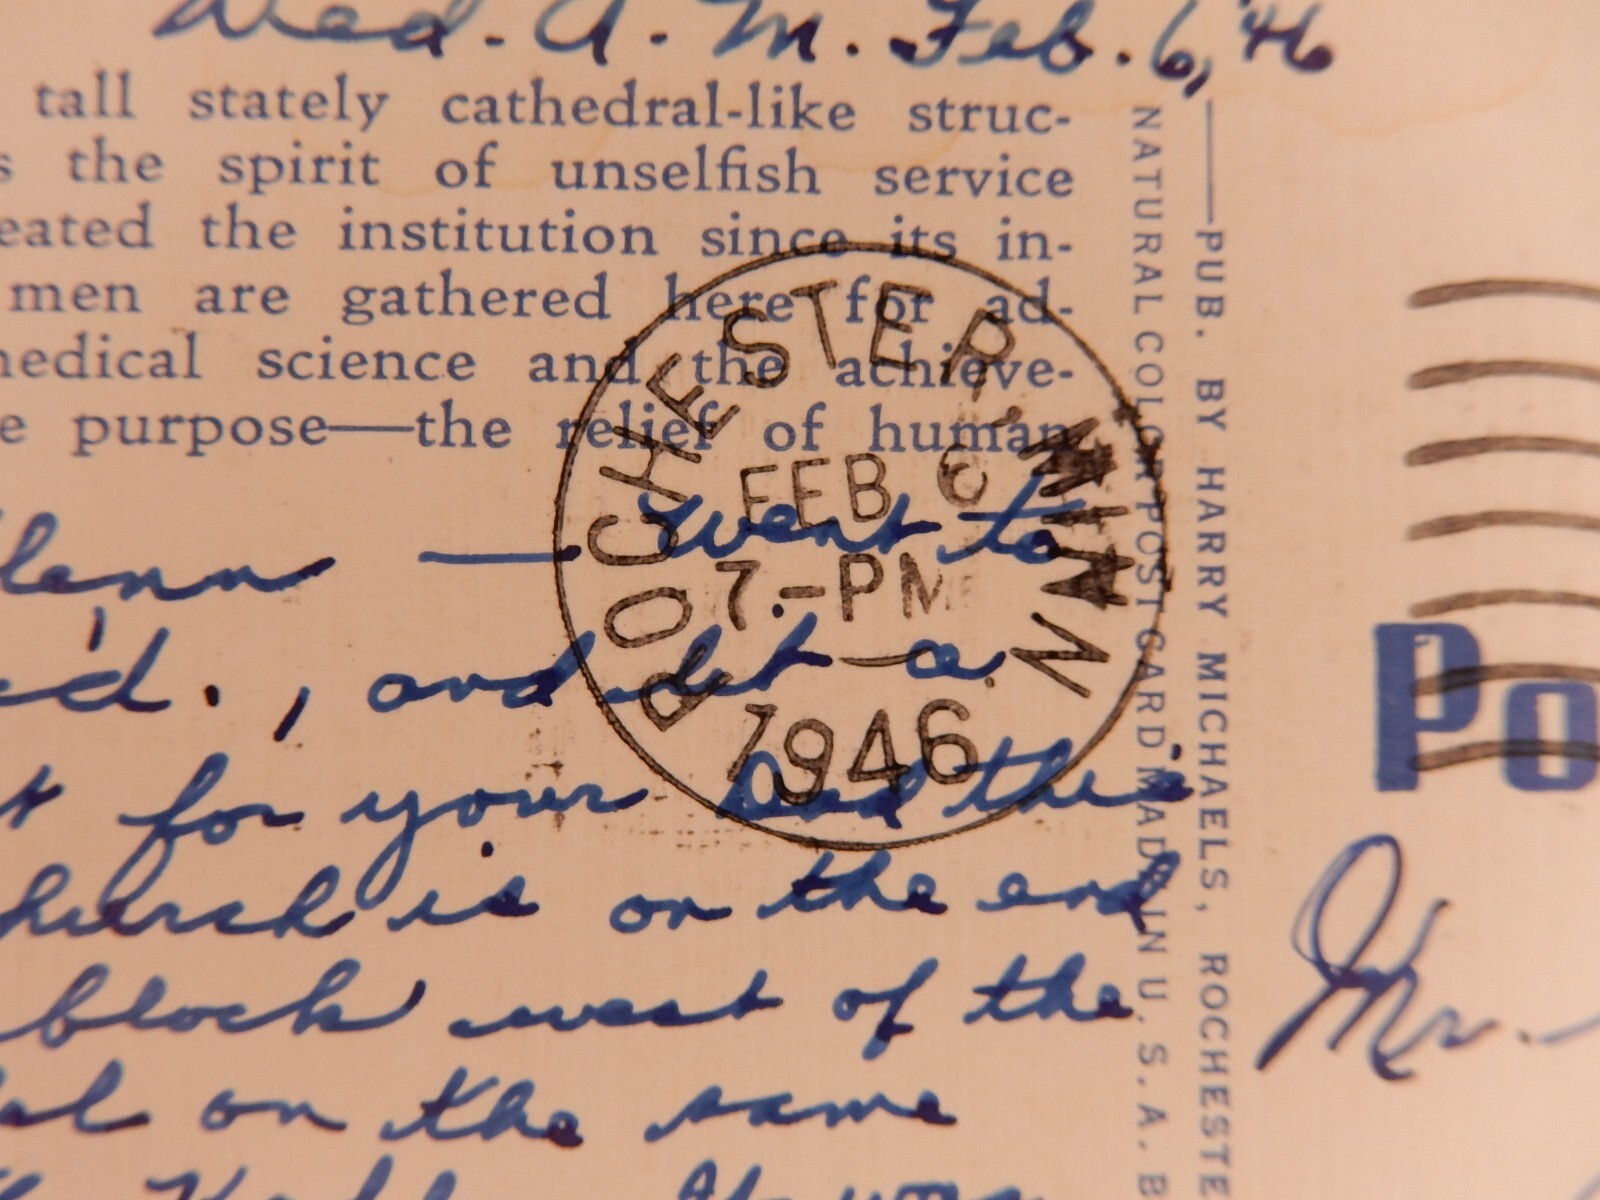 Wed. A.M. Feb. 6, '46
tall stately cathedral-like struc-
s the spirit of unselfish service
eated the institution since its in-
men are gathered here for ad-
medical science and the achieve-
e purpose—the relief of human
Glenn — went to
ed., and let a
for your Dad this
church is on the end
block west of the
on the same
ROCHESTER, MINN.
FEB 6
7-PM
1946
NATURAL COLOR POST CARD MADE IN U. S. A. B
—PUB. BY HARRY MICHAELS, ROCHESTE
Po
Mr.